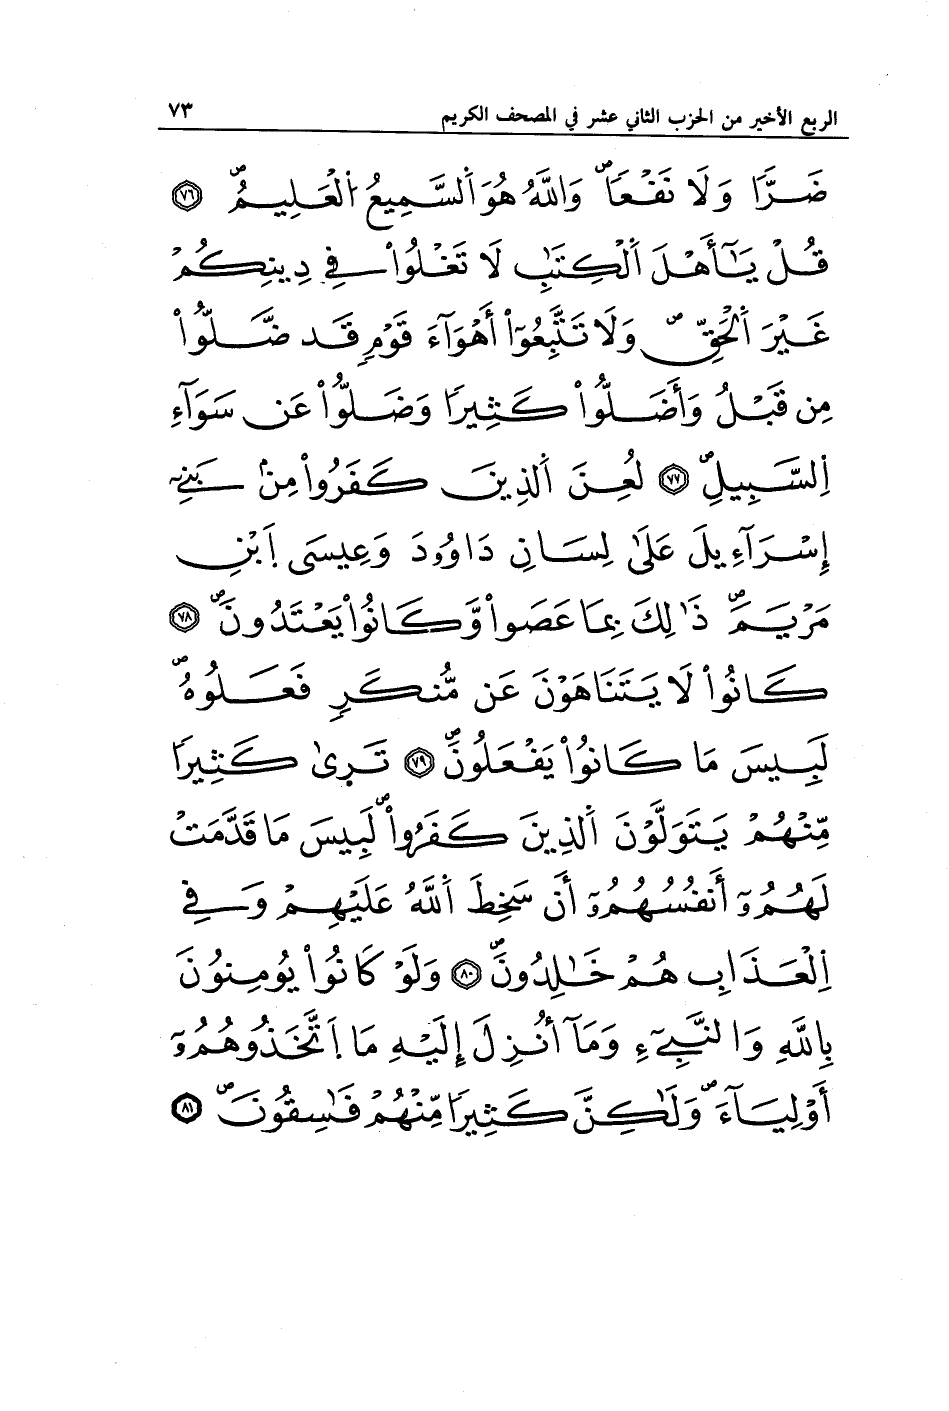 الربع الأخير من الحزب الثاني عشر في المصحف الكريم ٧٣
ضَرّٗا وَلَا نَفْعاٗۖ وَاللَّهُ هُوَ اَ۬لسَّمِيعُ اُ۬لْعَلِيمُۖ ٧٦
قُلْ يَٰٓأَهْلَ اَ۬لْكِتَٰبِ لَا تَغْلُواْ فِے دِينِكُمْ
غَيْرَ اَ۬لْحَقِّۖ وَلَا تَتَّبِعُوٓاْ أَهْوَآءَ قَوْمٖ قَد ضَّلُّواْ
مِن قَبْلُ وَأَضَلُّواْ كَثِيراٗ وَضَلُّواْ عَن سَوَآءِ
اِ۬لسَّبِيلِۖ ٧٧ لُعِنَ اَ۬لذِينَ كَفَرُواْ مِنۢ بَنِےٓ
إِسْرَآءِيلَ عَلَىٰ لِسَانِ دَاوُۥدَ وَعِيسَى اَ۪بْنِ
مَرْيَمَۖ ذَٰلِكَ بِمَا عَصَواْ وَّكَانُواْ يَعْتَدُونَۖ ٧٨
كَانُواْ لَا يَتَنَاهَوْنَ عَن مُّنكَرٖ فَعَلُوهُۖ
لَبِيسَ مَا كَانُواْ يَفْعَلُونَۖ ٧٩ تَر۪ىٰ كَثِيراٗ
مِّنْهُمْ يَتَوَلَّوْنَ اَ۬لذِينَ كَفَرُواْۖ لَبِيسَ مَا قَدَّمَتْ
لَهُمُۥٓ أَنفُسُهُمُۥٓ أَن سَخِطَ اَ۬للَّهُ عَلَيْهِمْ وَفِے
اِ۬لْعَذَابِ هُمْ خَٰلِدُونَۖ ٨٠ وَلَوْ كَانُواْ يُومِنُونَ
بِاللَّهِ وَالنَّبِےٓءِ وَمَآ أُنزِلَ إِلَيْهِ مَا اَ۪تَّخَذُوهُمُۥٓ
أَوْلِيَآءَۖ وَلَٰكِنَّ كَثِيراٗ مِّنْهُمْ فَٰسِقُونَۖ ٨١